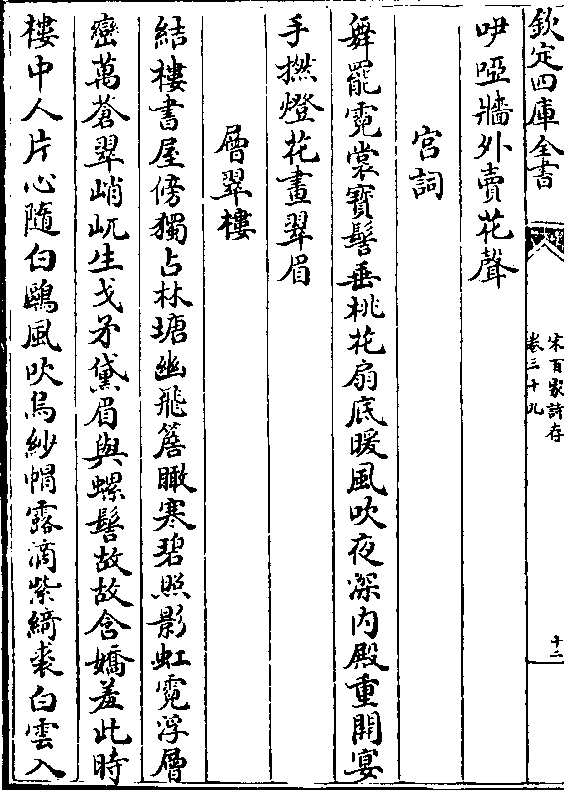 欽定四庫全書
宋百家詩存
卷三十九
十二
咿啞牆外賣花聲
宮詞
舞罷霓裳寶髻垂桃花扇底暖風吹夜深内殿重開宴
手撚燈花畫翠眉
層翠樓
結樓書屋傍獨占林塘幽飛簷瞰寒碧照影虹霓浮層
巒萬蒼翠峭屼生戈矛黛眉與螺髻故故含嬌羞此時
樓中人片心隨白鷗風吹烏紗帽露滴紫綺裘白雲入